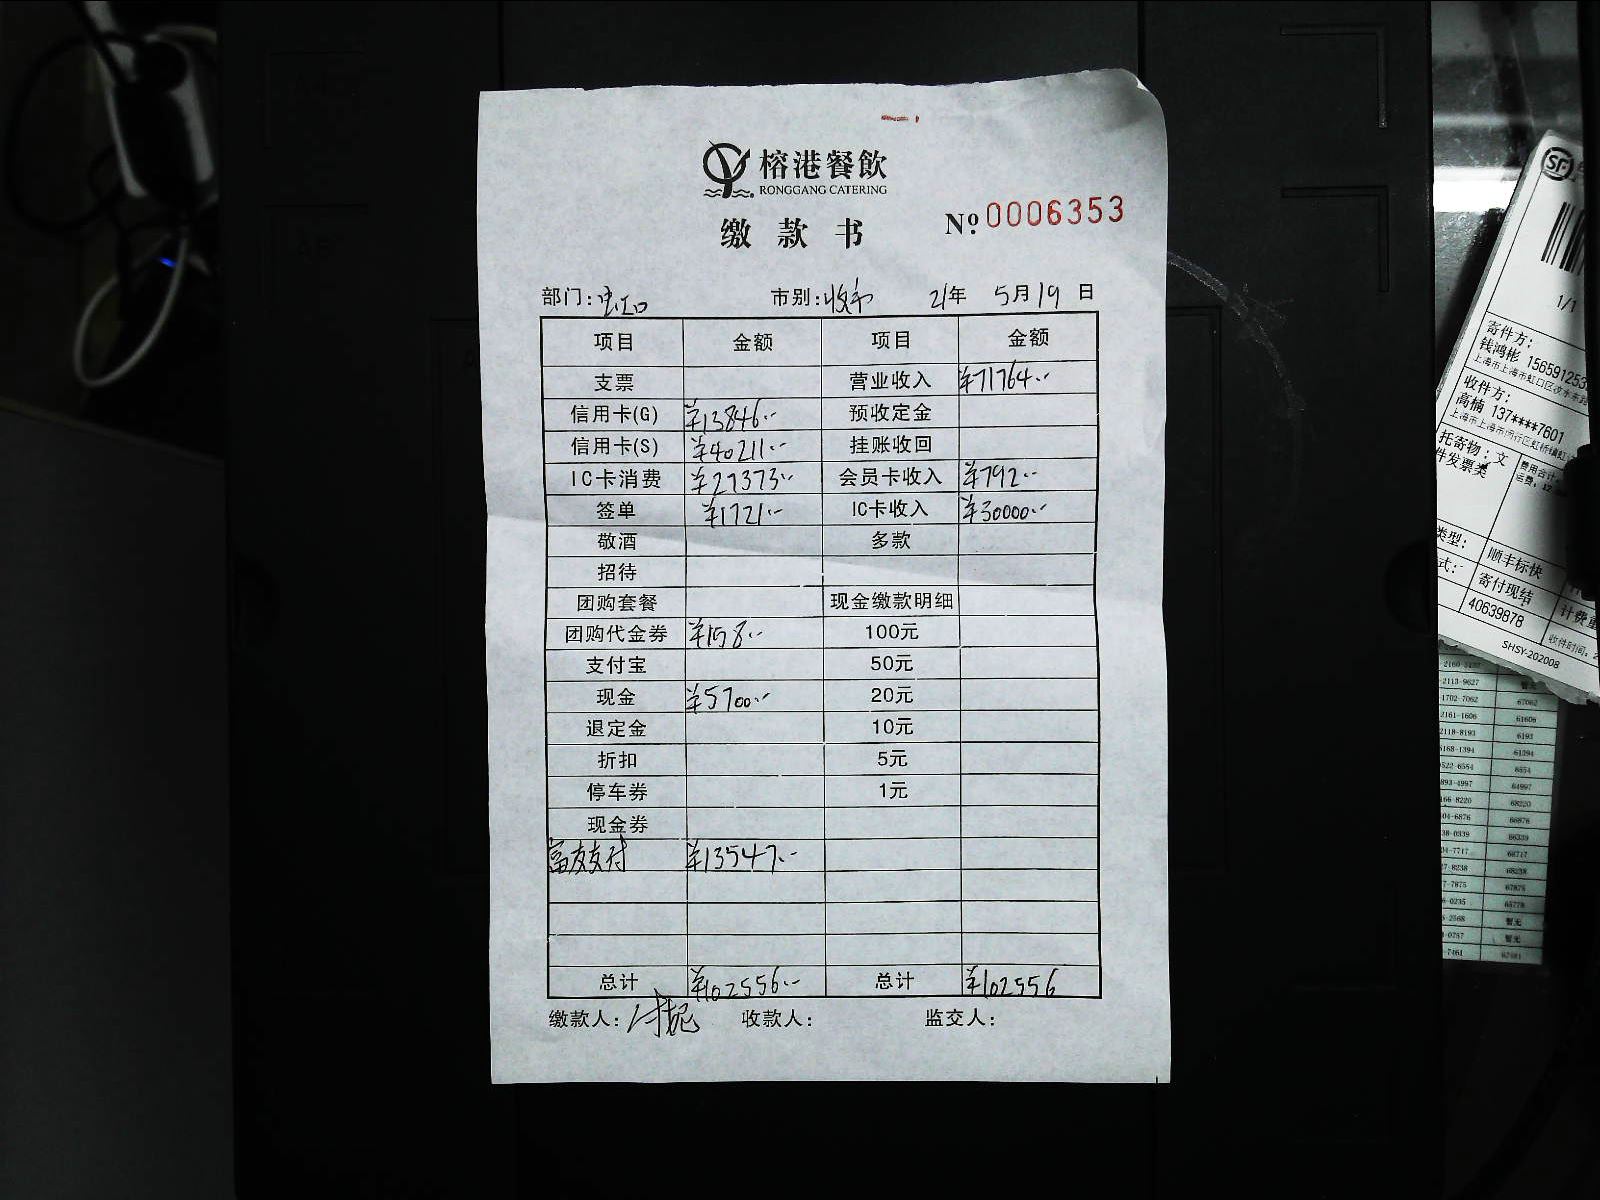 榕港餐飲
RONGGANG CATERING
缴款书 Nº 0006353
部门:虹口 市别:收市 21年 5月19日
项目 金额 项目 金额
支票 营业收入 ¥71764.--
信用卡(G) ¥13846.-- 预收定金
信用卡(S) ¥40211.-- 挂账收回
IC卡消费 ¥27373.-- 会员卡收入 ¥792.--
签单 ¥1721.-- IC卡收入 ¥30000.--
敬酒 多款
招待
团购套餐 现金缴款明细
团购代金券 ¥158.-- 100元
支付宝 50元
现金 ¥5700.-- 20元
退定金 10元
折扣 5元
停车券 1元
现金券
富友支付 ¥13547.--
总计 ¥102556.-- 总计 ¥102556
缴款人: 收款人: 监交人:
SF
1/1
寄件方:
钱鸿彬 156591253
收件方:
高楠 137****7601
托寄物:文
件发票类
类型: 顺丰标快
式: 寄付现结
40639878 计费重
SHSY-202008
2113-9627 暂无
1702-7062 67062
2161-1606 61606
2118-8193 6193